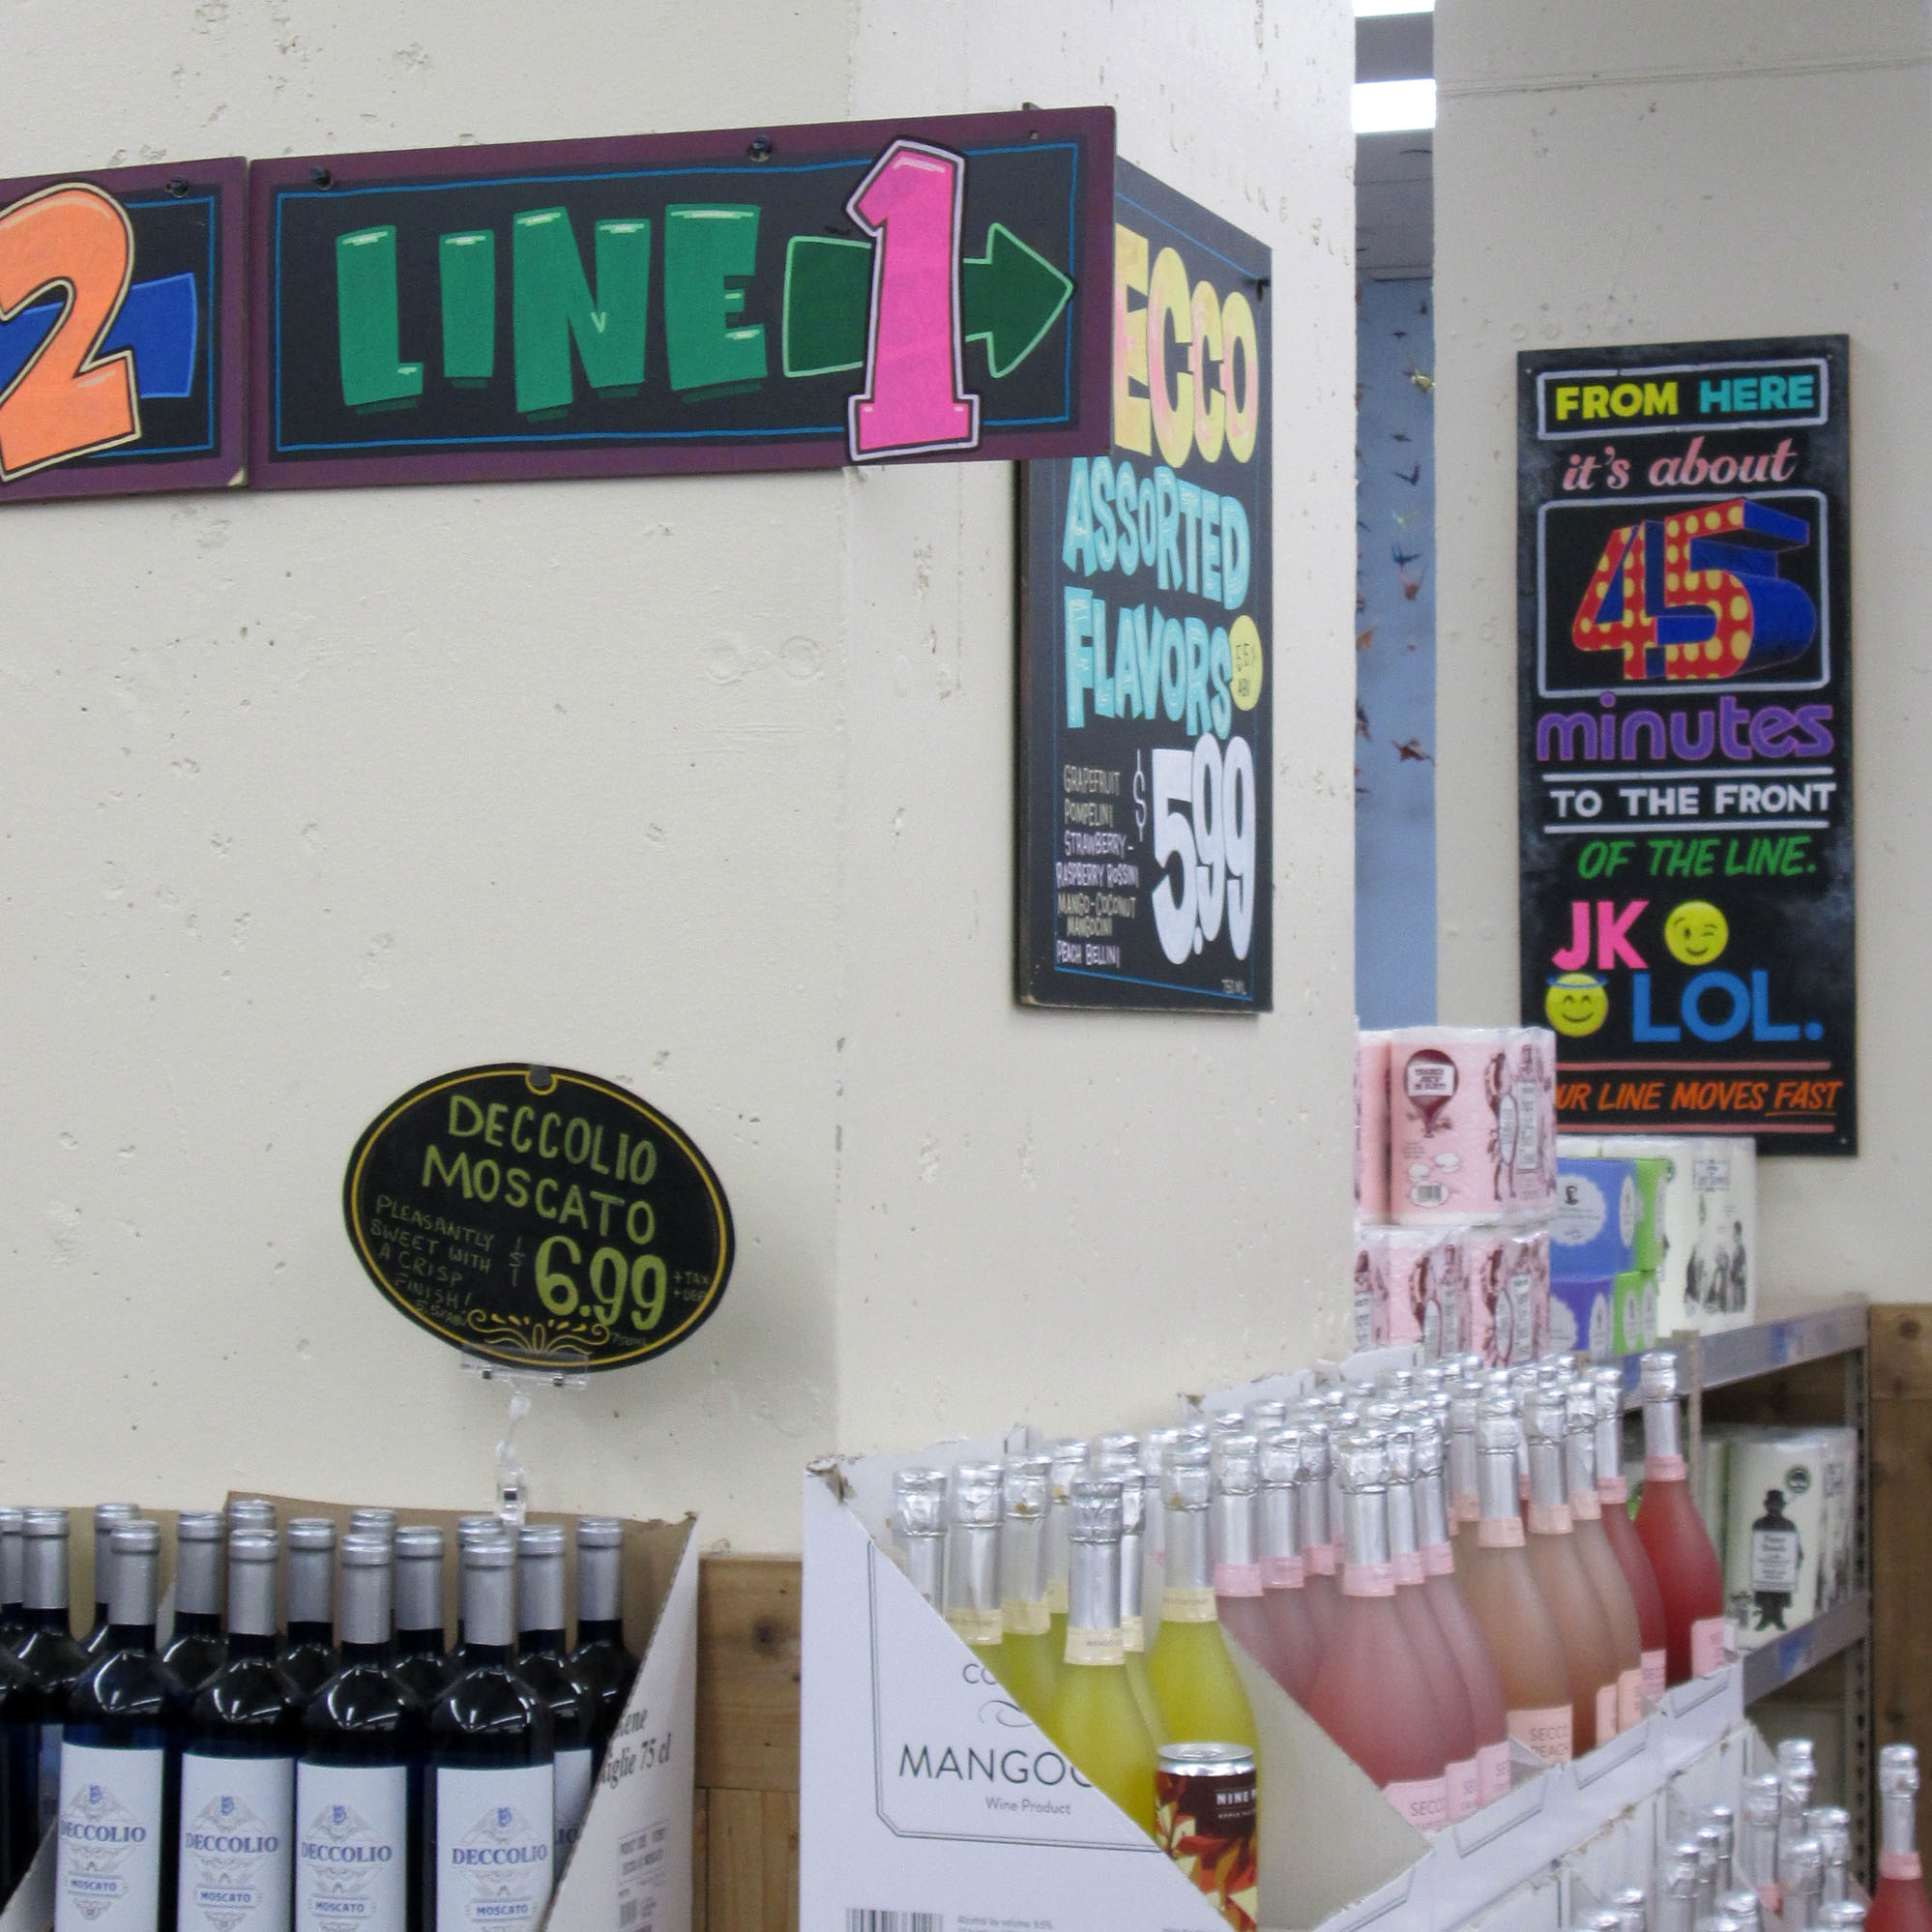 2
LINE 1
ECCO
ASSORTED
FLAVORS
5.5%
ABV
GRAPEFRUIT
POMPELINI
STRAWBERRY-
RASPBERRY ROSSINI
MANGO-COCONUT
MANGOCINI
PEACH BELLINI
$5.99
750 ML
FROM HERE
it's about
45
minutes
TO THE FRONT
OF THE LINE.
JK
LOL.
UR LINE MOVES FAST
DECCOLIO
MOSCATO
PLEASANTLY
SWEET WITH
A CRISP
FINISH!
5.5% ABV
$6.99
+TAX
750ML
DECCOLIO
MOSCATO
DECCOLIO
MOSCATO
DECCOLIO
MOSCATO
DECCOLIO
MOSCATO
75 cl
MANGOC
Wine Product
NINE
SECCO
PEACH